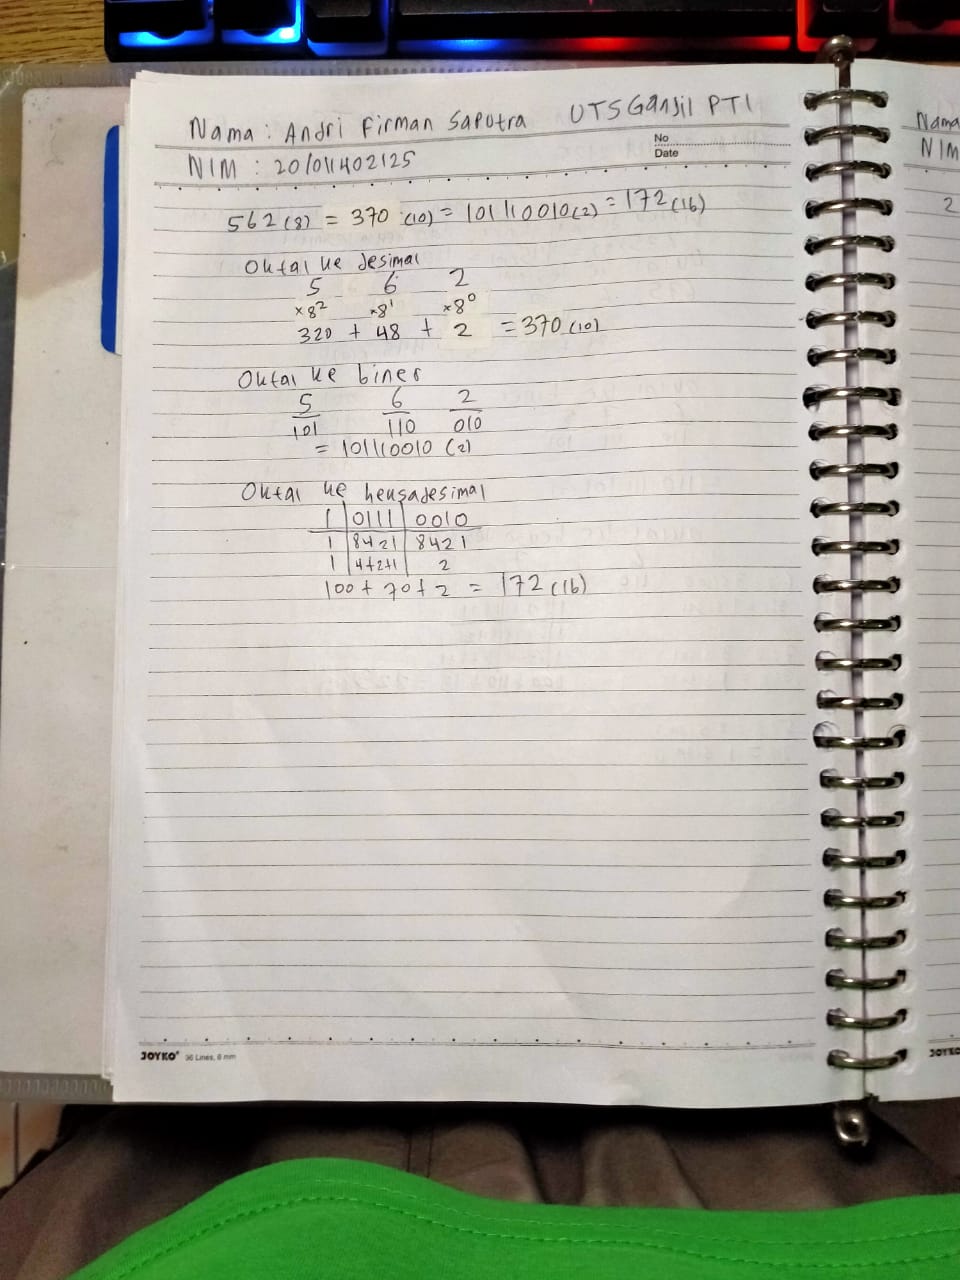 Nama : Andri Firman Saputra UTS Ganjil PTI
No
NIM : 201011402125
Date
562 (8) = 370 (10) = 101110010 (2) = 172 (16)
Oktal ke desimal
5 6 2
×8² ×8¹ ×8⁰
320 + 48 + 2 = 370 (10)
Oktal ke biner
5 6 2
101 110 010
= 101110010 (2)
Oktal ke heksadesimal
1 | 0111 | 0010
1 | 8421 | 8421
1 | 4+2+1 | 2
100 + 70 + 2 = 172 (16)
JOYKO 36 Lines, 8 mm
Nama
NIM
2
JOYKO